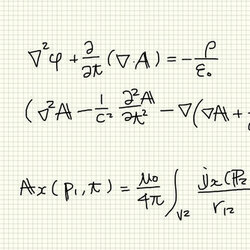 ∇²φ + ∂/∂t (∇A) = −ρ/ε₀
(∇²A − 1/c² ∂²A/∂t² − ∇(∇A +
Ax(P₁,t) = μ₀/4π ∫v₂ jx(P₂ / r₁₂